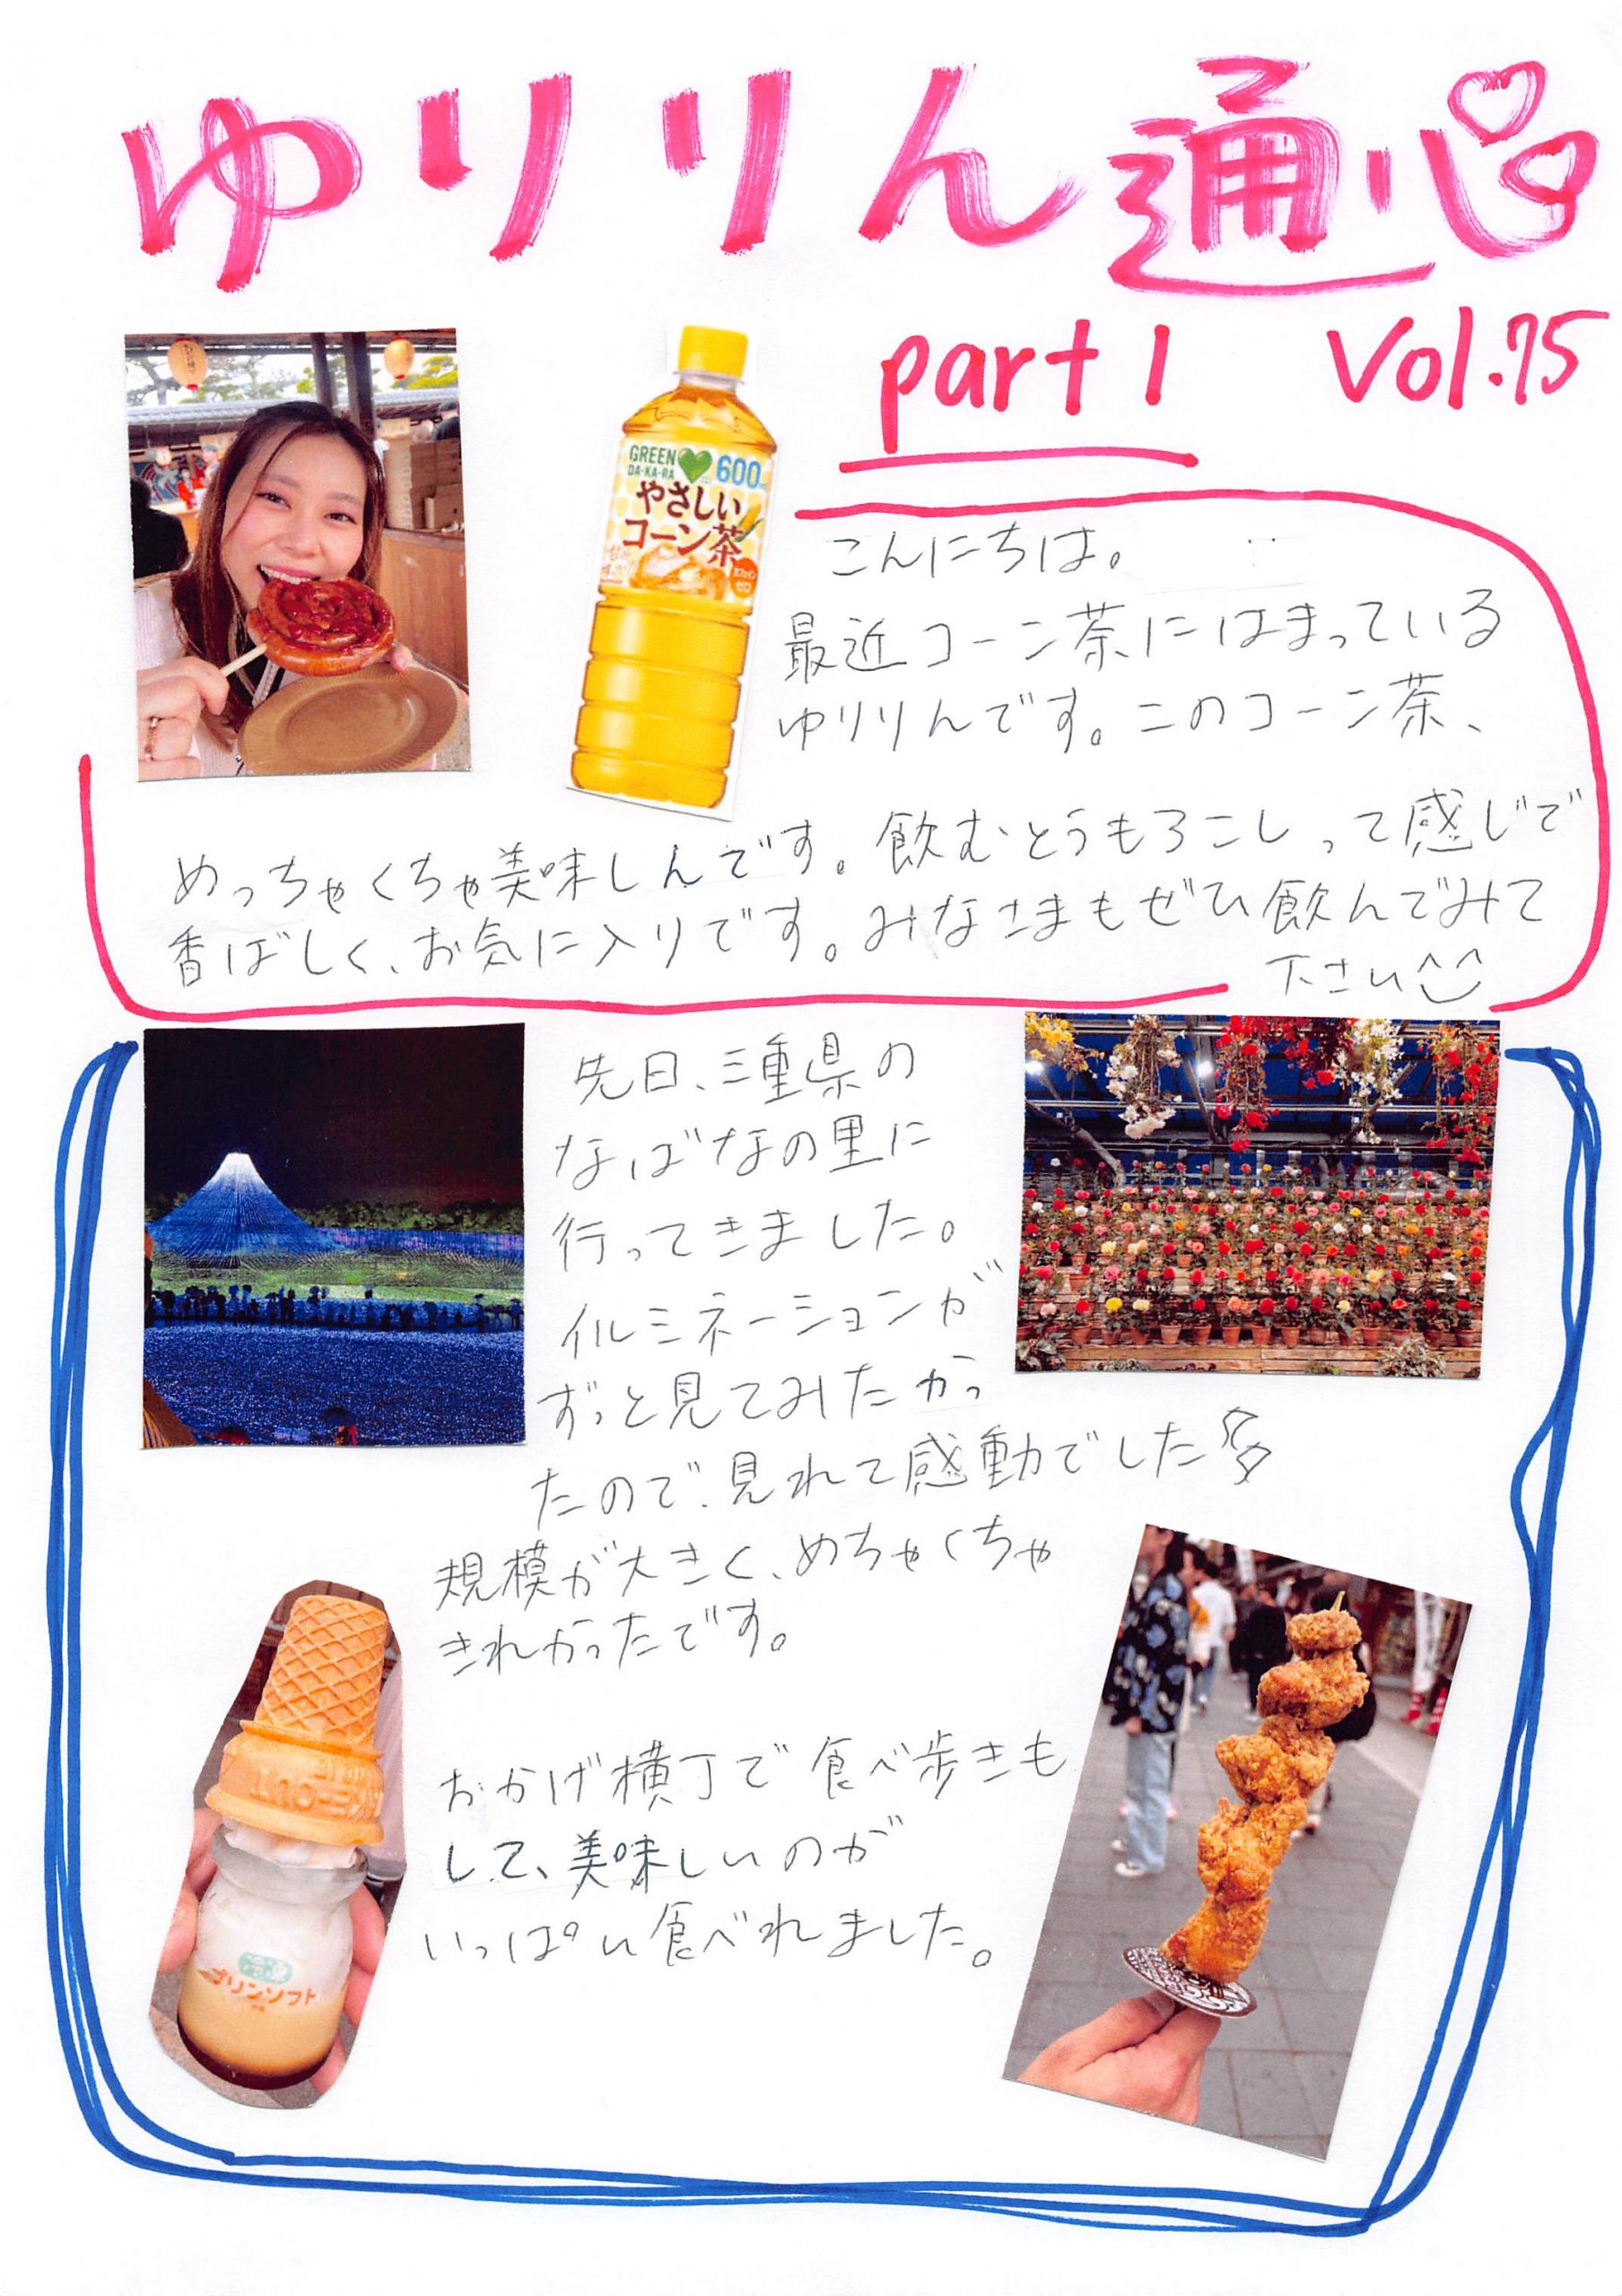 ゆりりん通心
part1 Vol.75
GREEN
DA・KA・RA
600
やさしい
コーン茶
こんにちは。
最近コーン茶にはまっている
ゆりりんです。このコーン茶、
めっちゃくちゃ美味しんです。飲むとうもろこしって感じで
香ばしく、お気に入りです。みなさまもぜひ飲んでみて
下さい^^
先日、三重県の
なばなの里に
行ってきました。
イルミネーションが
ずっと見てみたかっ
たので、見れて感動でした
規模が大きく、めちゃくちゃ
きれかったです。
おかげ横丁で食べ歩きも
して、美味しいのが
いっぱい食べれました。
プリンソフト